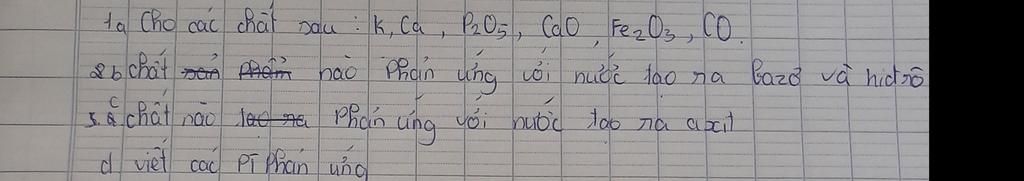 1a Cho các chất sau : K, Ca, P₂O₅, CaO, Fe₂O₃, CO.
2b chất sản phẩm nào phản ứng với nước tạo ra bazơ và hiđrô
3. c chất nào tạo ra phản ứng với nước tạo ra axit
d viết các PT phản ứng